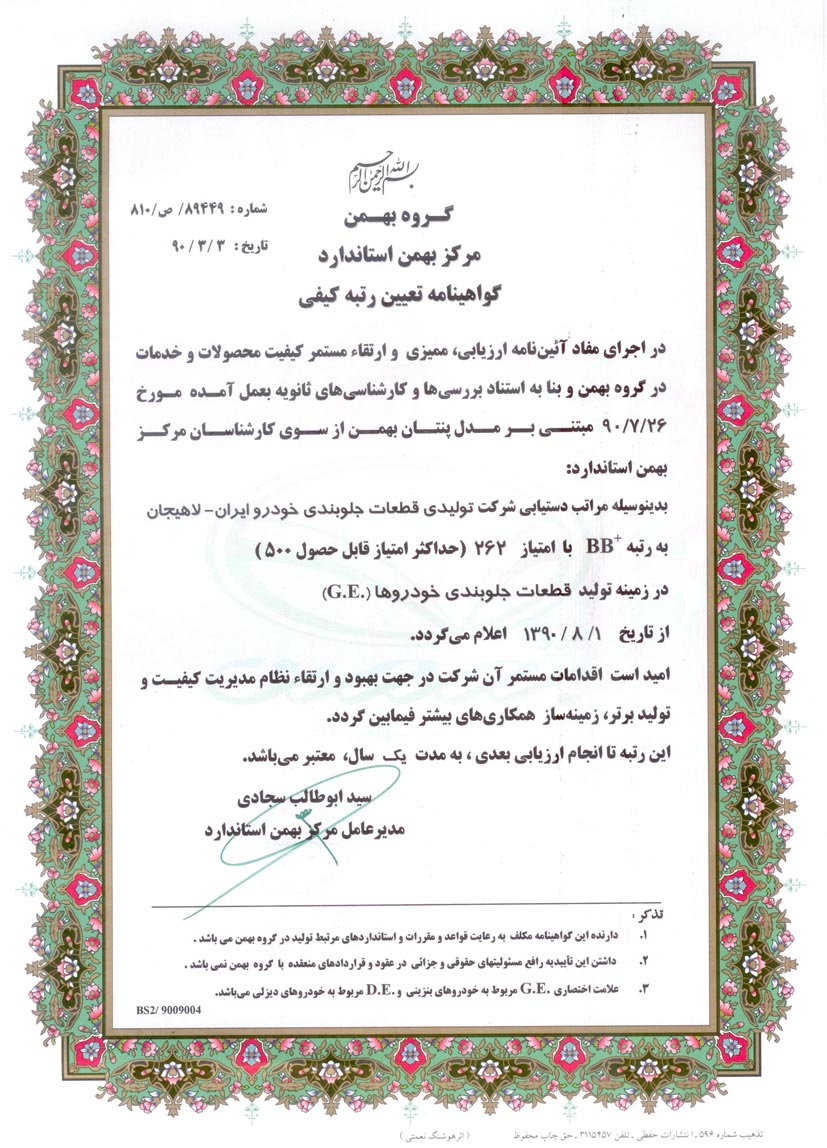 بسم الله الرحمن الرحیم
شماره : ۸۹۴۴۹/ ص/۸۱۰
گـروه بهـمن
تاریخ : ۹۰/۳/۳
مرکز بهمن استاندارد
گواهینامه تعیین رتبه کیفی
در اجرای مفاد آئین‌نامه ارزیابی، ممیزی و ارتقاء مستمر کیفیت محصولات و خدمات
در گروه بهمن و بنا به استناد بررسی‌ها و کارشناسی‌های ثانویه بعمل آمـده مـورخ
۹۰/۷/۲۶ مبتنـی بـر مـدل پنتـان بهمـن از سـوی کارشناسـان مرکـز
بهمن استاندارد:
بدینوسیله مراتب دستیابی شرکت تولیدی قطعات جلوبندی خودرو ایران- لاهیجان
به رتبه BB+ با امتیاز ۲۶۲ (حداکثر امتیاز قابل حصول ۵۰۰ )
در زمینه تولید قطعات جلوبندی خودروها (G.E.)
از تاریخ ۱۳۹۰/۸/۱ اعلام می‌گردد.
امید است اقدامات مستمر آن شرکت در جهت بهبود و ارتقاء نظام مدیریت کیفیـت و
تولید برتر، زمینه‌ساز همکاری‌های بیشتر فیمابین گردد.
این رتبه تا انجام ارزیابی بعدی ، به مدت یک سال، معتبر می‌باشد.
سید ابوطالب سجادی
مدیرعامل مرکز بهمن استاندارد
تذکر :
۱. دارنده این گواهینامه مکلف به رعایت قواعد و مقررات و استانداردهای مرتبط تولید در گروه بهمن می باشد .
۲. داشتن این تأییدیه رافع مسئولیتهای حقوقی و جزائی در عقود و قراردادهای منعقده با گروه بهمن نمی باشد .
۳. علامت اختصاری G.E. مربوط به خودروهای بنزینی و D.E. مربوط به خودروهای دیزلی می‌باشد.
BS2/ 9009004
تذهیب شماره ۵۹۶ ـ انتشارات حفظی ـ تلفن ۳۱۱۵۴۵۷ ـ حق چاپ محفوظ (اثر هوشنگ نعمتی )